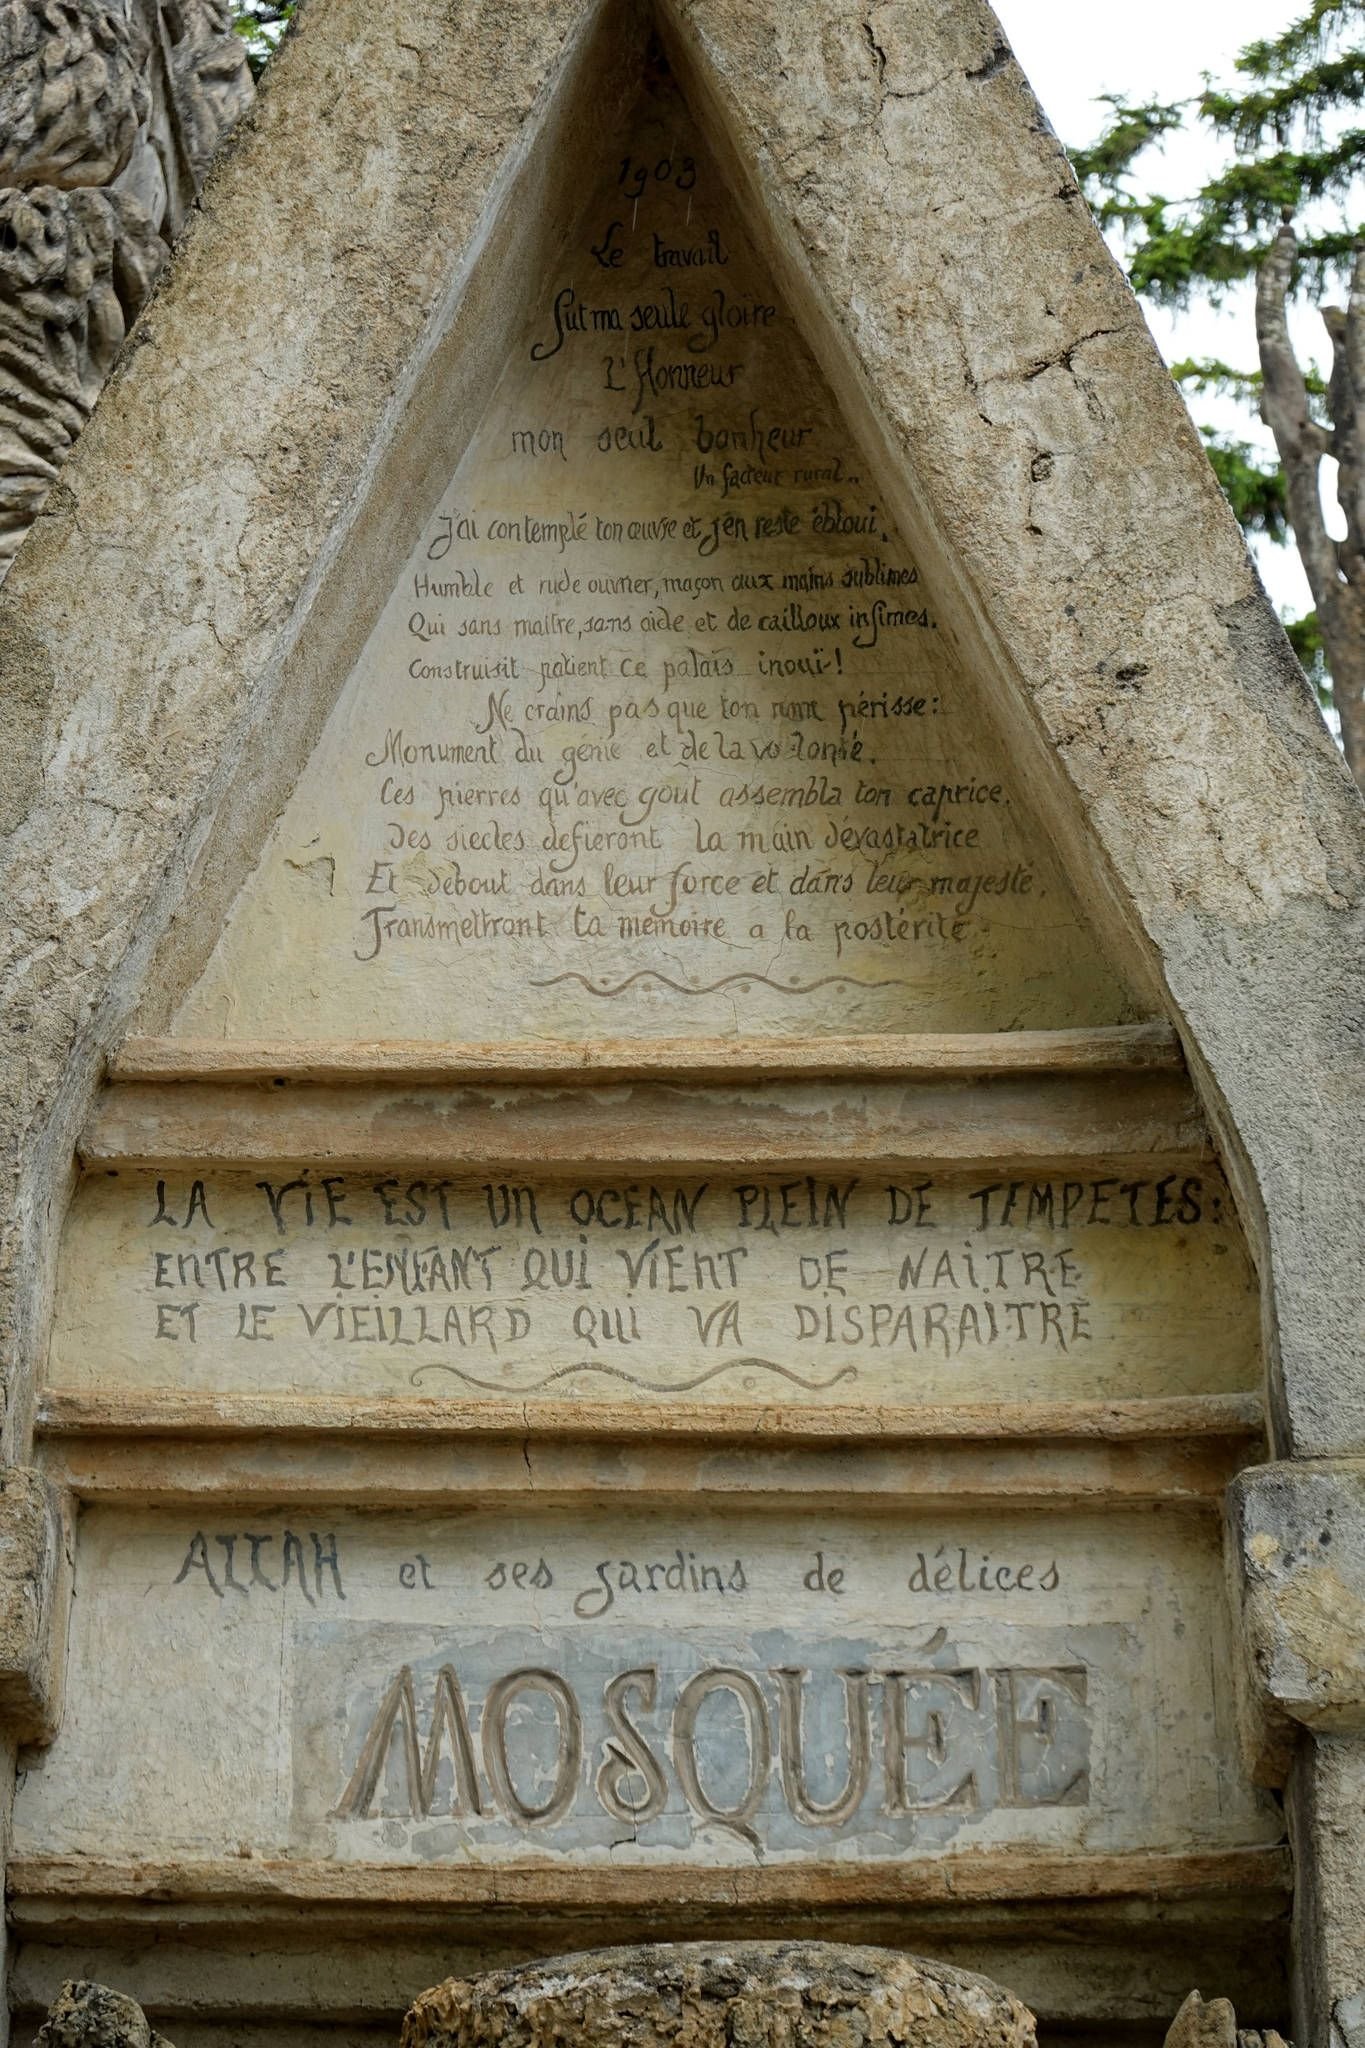 1903
Le travail
fut ma seule gloire
L'Honneur
mon seul bonheur
Un facteur rural..
J'ai contemplé ton œuvre et j'en reste ébloui.
Humble et rude ouvrier, maçon aux mains sublimes
Qui sans maitre, sans aide et de cailloux infimes.
Construisit patient ce palais inouï!
Ne crains pas que ton nom périsse:
Monument du génie et de la volonté.
Ces pierres qu'avec gout assembla ton caprice.
Des siecles defieront la main dévastatrice
Et debout dans leur force et dans leur majesté.
Transmettront ta memoire a la postérité
LA VIE EST UN OCEAN PLEIN DE TEMPETES:
ENTRE L'ENFANT QUI VIENT DE NAITRE
ET LE VIEILLARD QUI VA DISPARAITRE
ALLAH et ses jardins de délices
MOSQUÉE